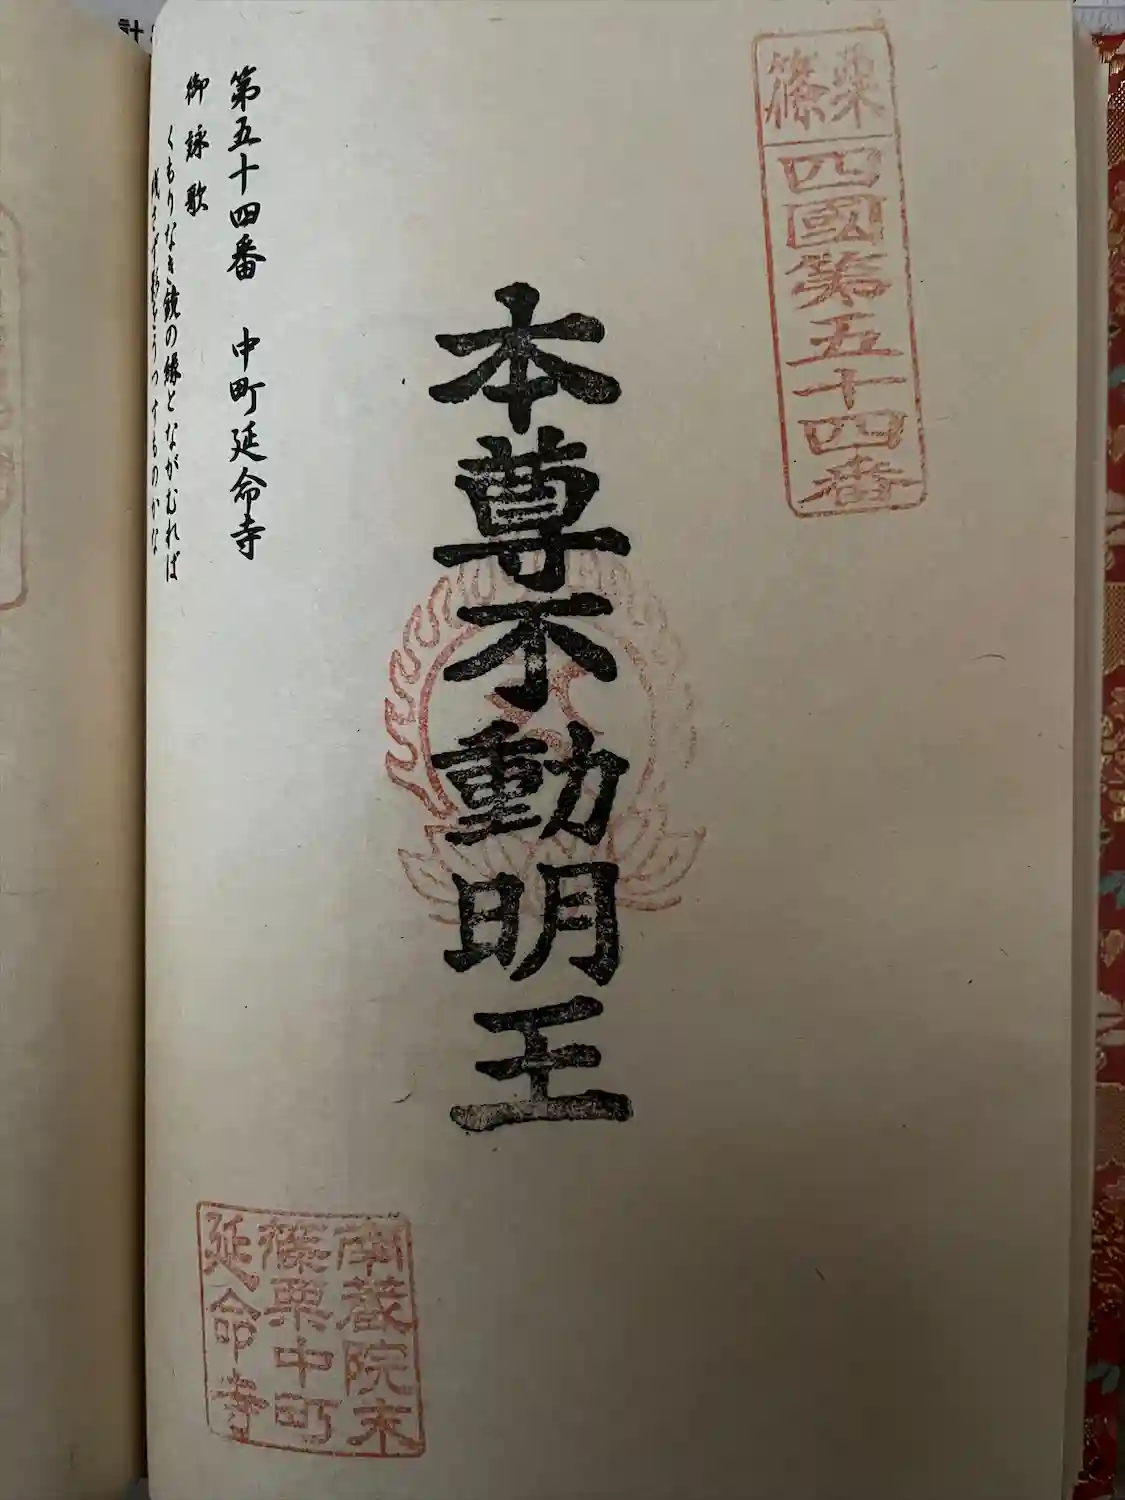 篠栗
四國第五十四番
本尊不動明王
南蔵院末
篠栗中町
延命寺
第五十四番 中町延命寺
御詠歌
くもりなき鏡の縁とながむれば
残さず影をうつすものかな
計